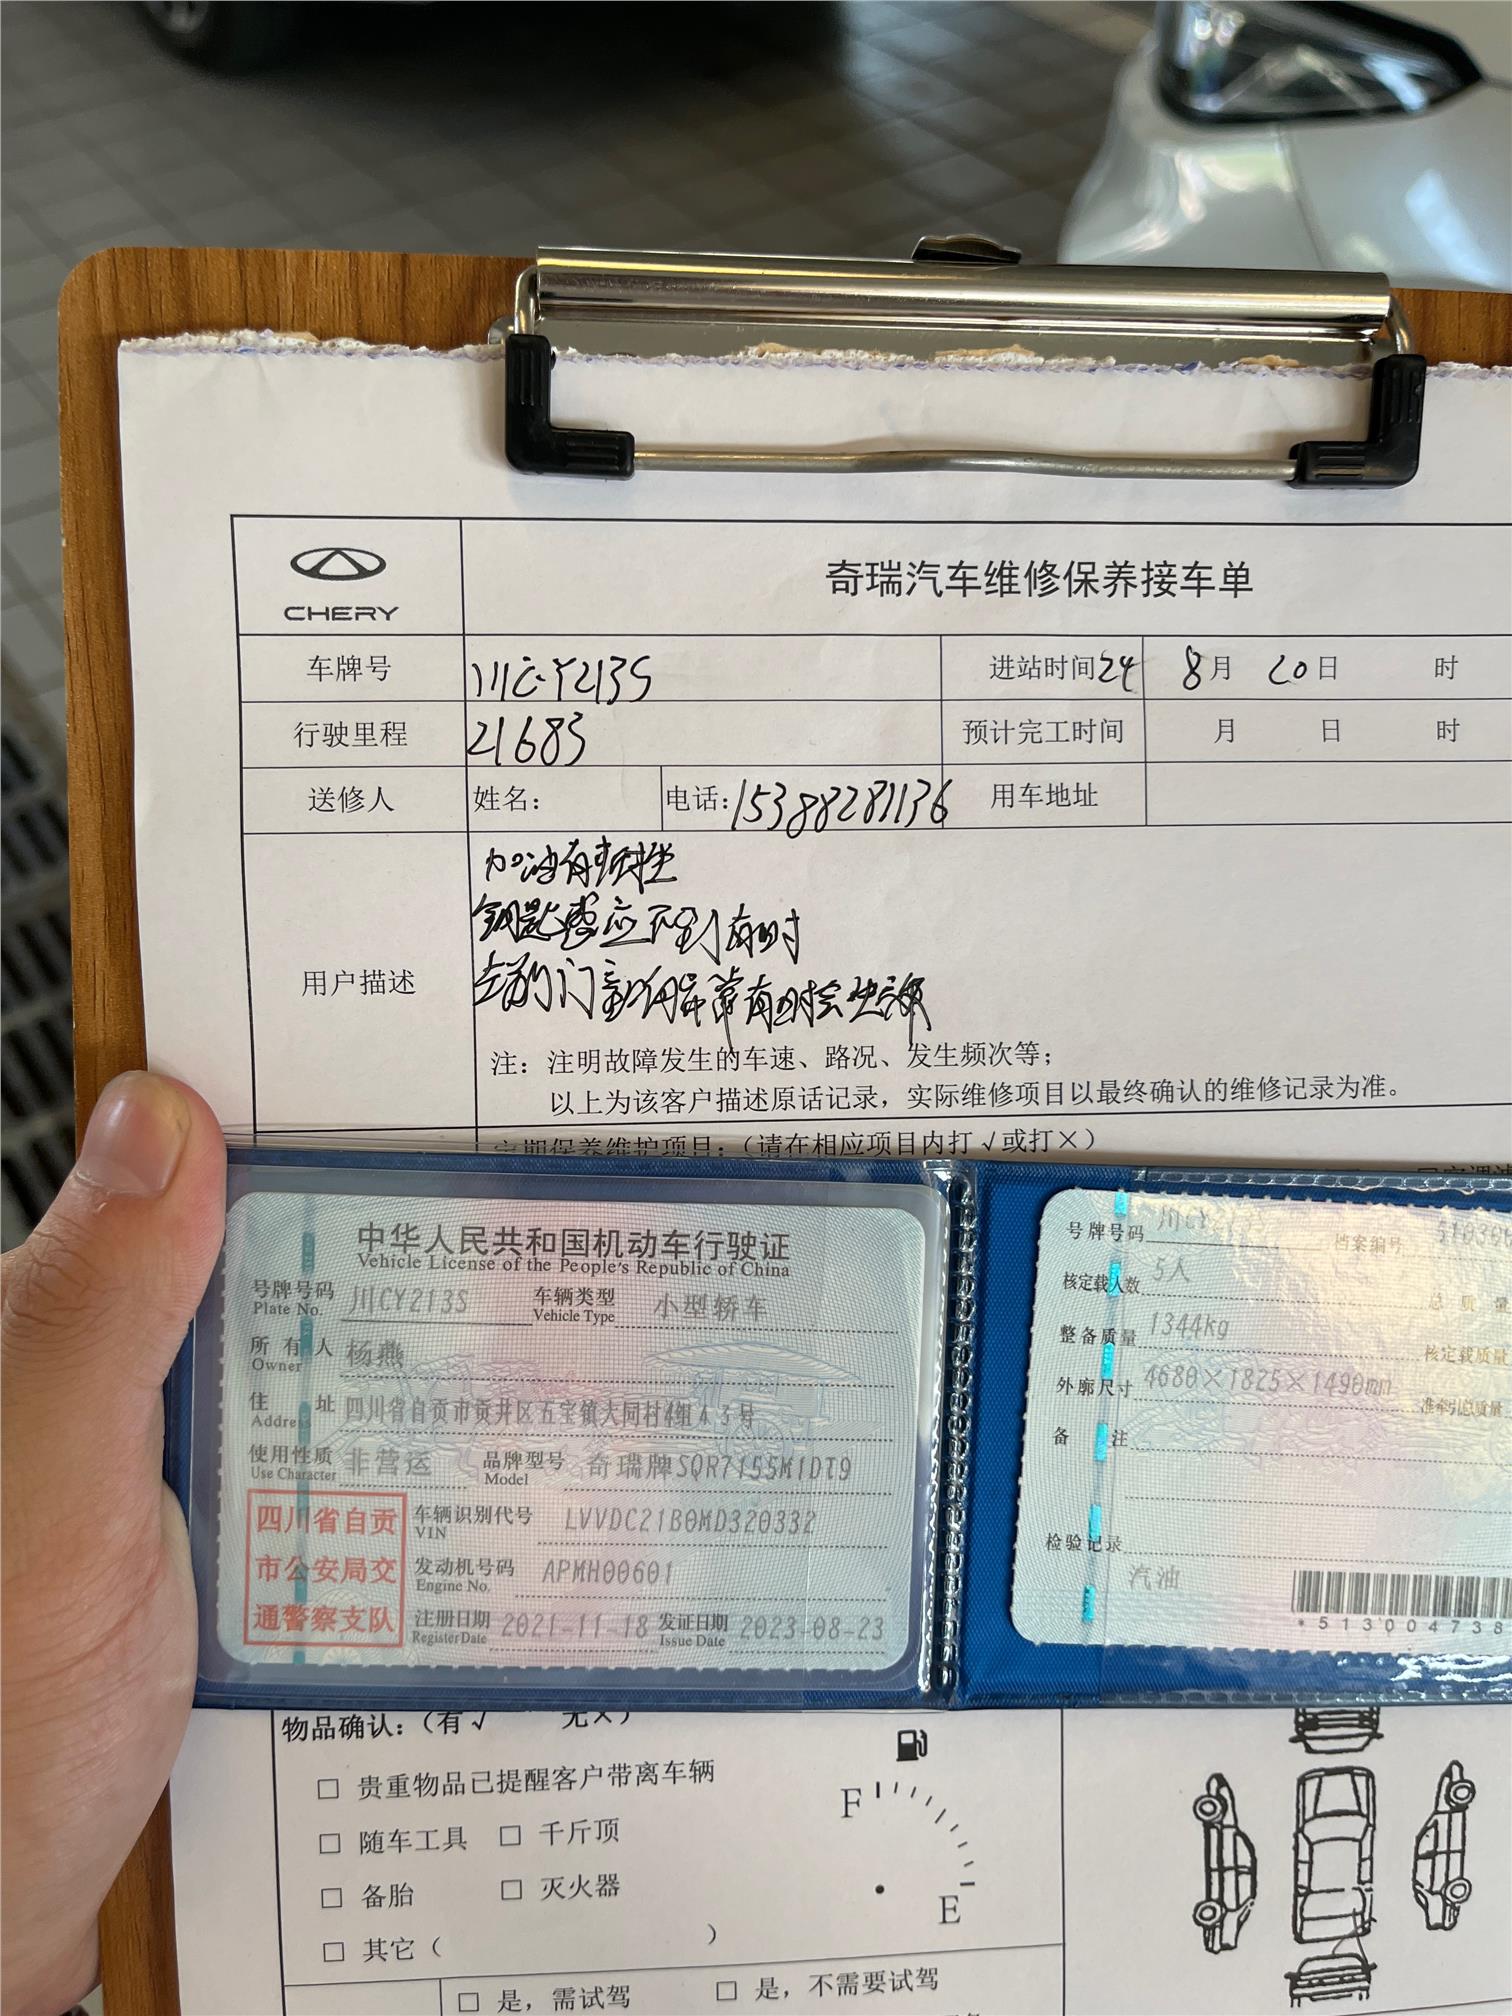 CHERY
奇瑞汽车维修保养接车单
车牌号 川C·Y213S 进站时间 24 8月 20日 时
行驶里程 21683 预计完工时间 月 日 时
送修人 姓名: 电话:15388281136 用车地址
用户描述
加油有
钥匙感应不到有时
左前门 有时会失灵
注：注明故障发生的车速、路况、发生频次等；
以上为该客户描述原话记录，实际维修项目以最终确认的维修记录为准。
定期保养维护项目：（请在相应项目内打√或打×）
中华人民共和国机动车行驶证
Vehicle License of the People's Republic of China
号牌号码 川CY213S 车辆类型 小型轿车
Plate No. Vehicle Type
所有人 杨燕
Owner
住址 四川省自贡市贡井区五宝镇大同村4组43号
Address
使用性质 非营运 品牌型号 奇瑞牌SQR7155M1DT9
Use Character Model
四川省自贡
市公安局交
通警察支队
车辆识别代号 LVVDC21B0MD320332
VIN
发动机号码 APMH00601
Engine No.
注册日期 2021-11-18 发证日期 2023-08-23
Register Date Issue Date
号牌号码 川CY213S 档案编号 510300
核定载人数 5人 总质量
整备质量 1344kg 核定载质量
外廓尺寸 4680×1825×1490mm 准牵引总质量
备注
检验记录
汽油
*513004738
物品确认：（有√ 无×）
□ 贵重物品已提醒客户带离车辆
□ 随车工具 □ 千斤顶
□ 备胎 □ 灭火器
□ 其它（ ）
F
E
□ 是，需试驾 □ 是，不需要试驾